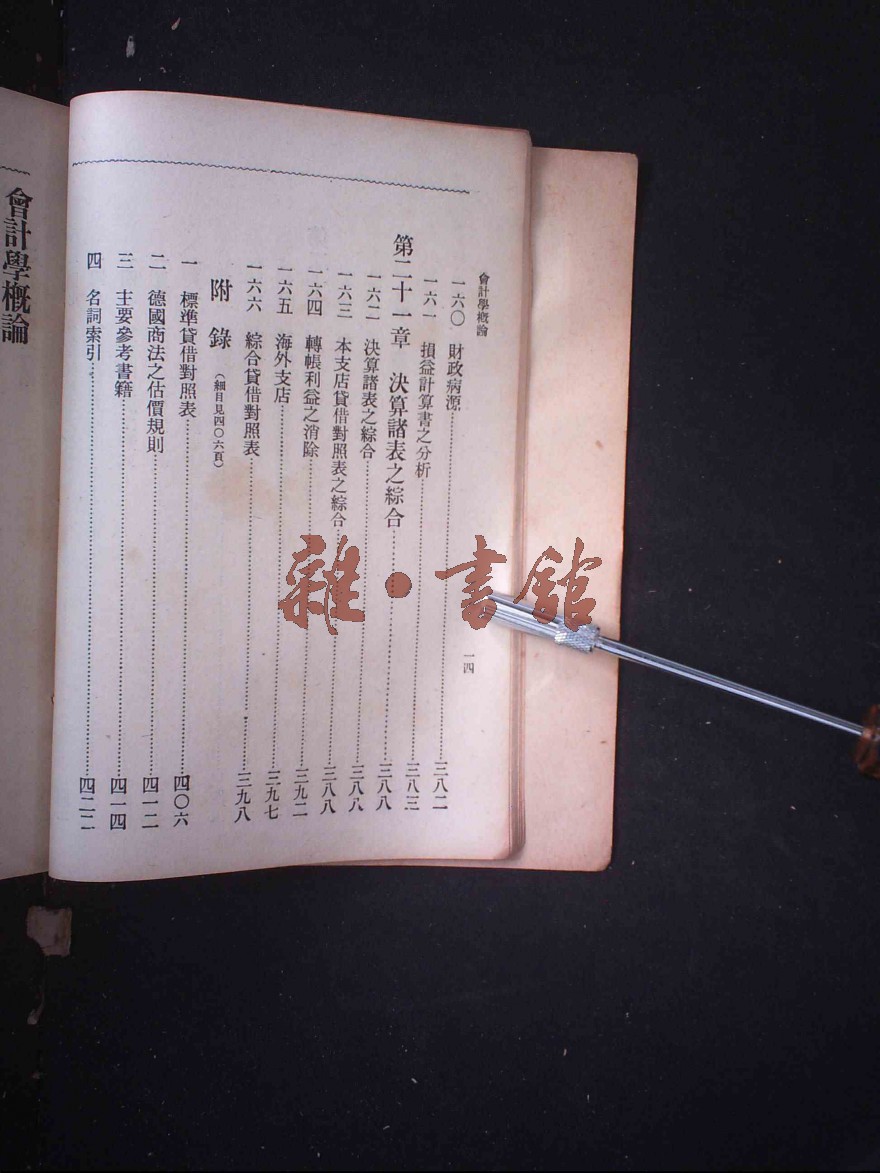 會計學概論
一四
一六〇　財政病源……………三八二
一六一　損益計算書之分析……………三八三
第二十一章　決算諸表之綜合……………三八八
一六二　決算諸表之綜合……………三八八
一六三　本支店貸借對照表之綜合……………三八八
一六四　轉帳利益之消除……………三九二
一六五　海外支店……………三九七
一六六　綜合貸借對照表……………三九八
附錄（細目見四〇六頁）
一　標準貸借對照表……………四〇六
二　德國商法之估價規則……………四一二
三　主要參考書籍……………四一四
四　名詞索引……………四二二
會計學概論
雜·書館